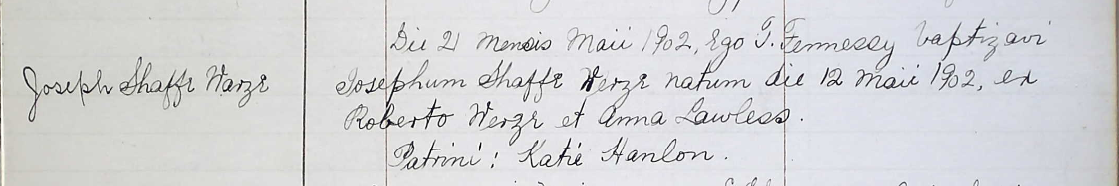 Die 21 mensis Maii 1902, Ego T. Fennessy baptizavi
Joseph Shaffr Warzr
Josephum Shaffr Werzr natum die 12 Maii 1902, ex
Roberto Werzr et Anna Lawless.
Patrini: Katie Hanlon.